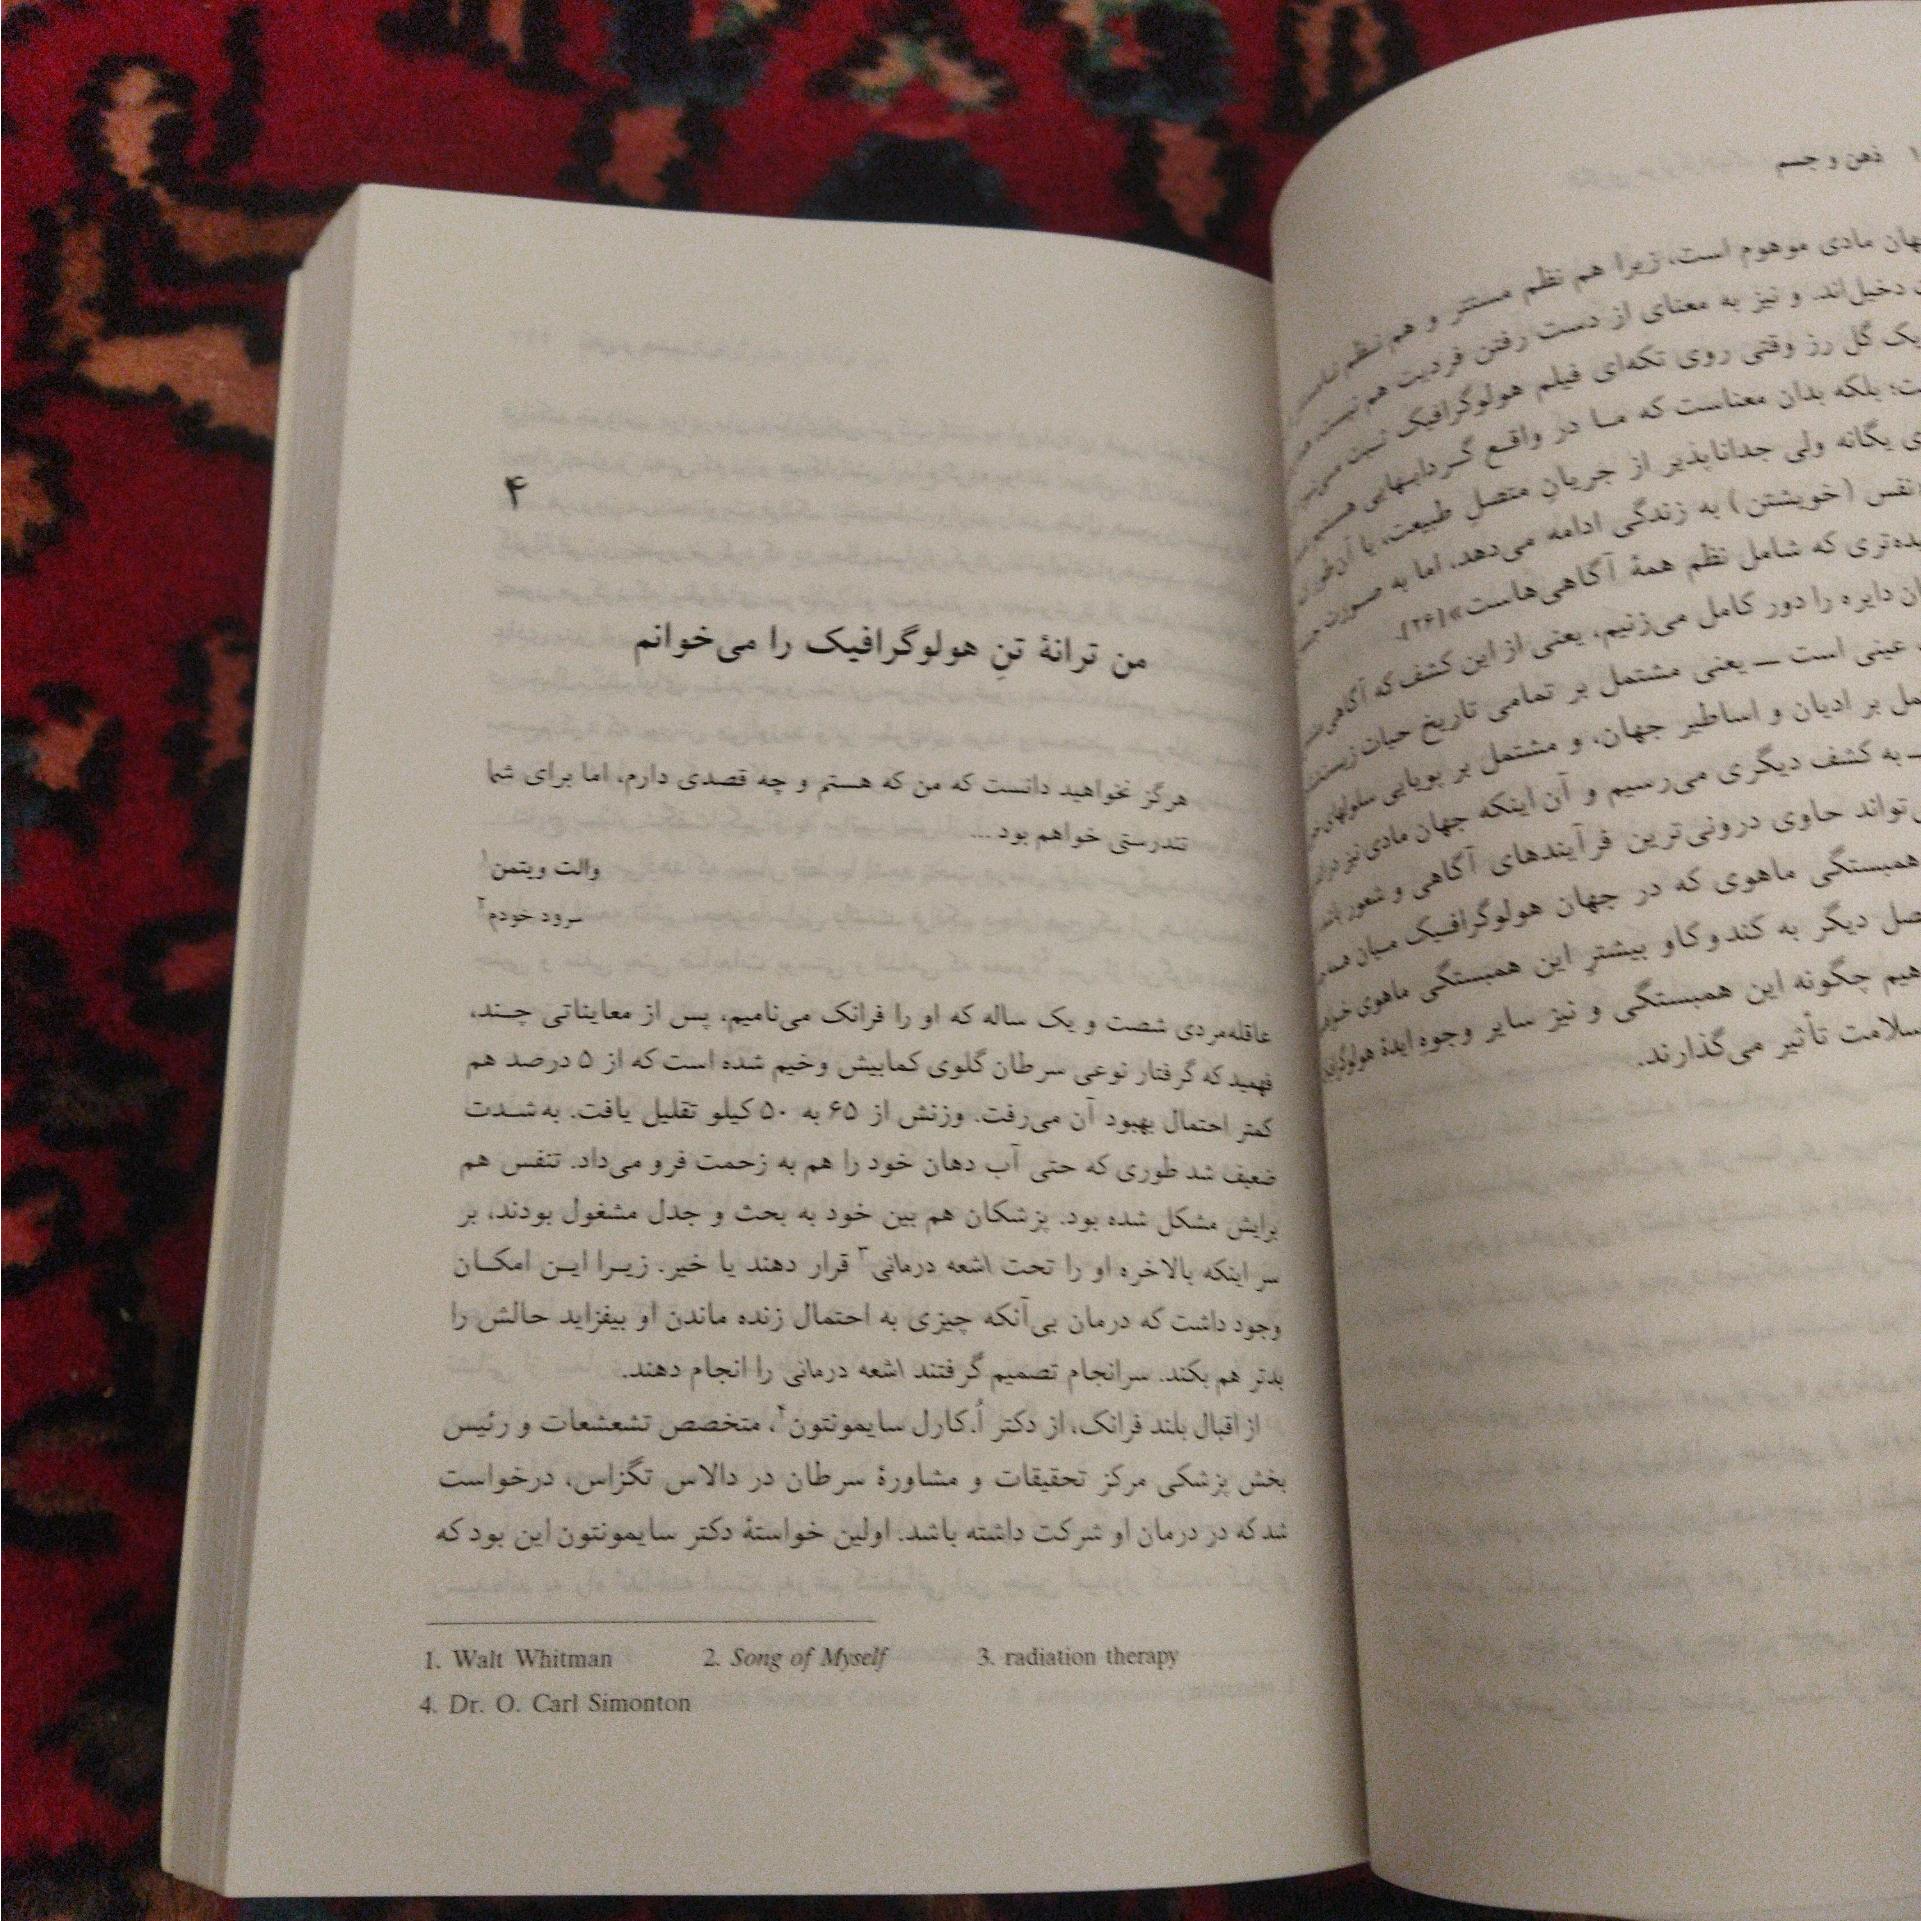 ذهن و جسم
جهان مادی موهوم است، زیرا هم نظم مستتر و هم نظم
دخیل‌اند. و نیز به معنای از دست رفتن فردیت هم نیست،
یک گل رز وقتی روی تکه‌ای فیلم هولوگرافیک ثبت می‌شود
بلکه بدان معناست که ما در واقع گردابهایی هستیم
یگانه ولی جداناپذیر از جریانِ متصلِ طبیعت، یا آن‌طور که
نفس (خویشتن) به زندگی ادامه می‌دهد، اما به صورت
که شامل نظم همهٔ آگاهی‌هاست»[۲۶].
دایره را دور کامل می‌زنیم، یعنی از این کشف که آگاهی
عینی است — یعنی مشتمل بر تمامی تاریخ حیات
بر ادیان و اساطیر جهان، و مشتمل بر پویایی سلولهای
— به کشف دیگری می‌رسیم و آن اینکه جهان مادی نیز
حاوی درونی‌ترین فرآیندهای آگاهی و شعور باشد
همبستگی ماهوی که در جهان هولوگرافیک میان همه
دیگر به کندوکاو بیشترِ این همبستگی ماهوی
چگونه این همبستگی و نیز سایر وجوهِ ایدهٔ هولوگرافیک
سلامت تأثیر می‌گذارند.
۴
من ترانهٔ تنِ هولوگرافیک را می‌خوانم
هرگز نخواهید دانست که من که هستم و چه قصدی دارم، اما برای شما
تندرستی خواهم بود ...
والت ویتمن۱
سرود خودم۲
عاقله‌مردی شصت و یک ساله که او را فرانک می‌نامیم، پس از معایناتی چند،
فهمید که گرفتار نوعی سرطان گلوی کمابیش وخیم شده است که از ۵ درصد هم
کمتر احتمال بهبود آن می‌رفت. وزنش از ۶۵ به ۵۰ کیلو تقلیل یافت. به‌شدت
ضعیف شد طوری که حتی آب دهان خود را هم به زحمت فرو می‌داد. تنفس هم
برایش مشکل شده بود. پزشکان هم بین خود به بحث و جدل مشغول بودند، بر
سر اینکه بالاخره او را تحت اشعه درمانی۳ قرار دهند یا خیر. زیرا این امکان
وجود داشت که درمان بی‌آنکه چیزی به احتمال زنده ماندن او بیفزاید حالش را
بدتر هم بکند. سرانجام تصمیم گرفتند اشعه درمانی را انجام دهند.
از اقبال بلند فرانک، از دکتر اُ.کارل سایمونتون۴، متخصص تشعشعات و رئیس
بخش پزشکی مرکز تحقیقات و مشاورهٔ سرطان در دالاس تگزاس، درخواست
شد که در درمان او شرکت داشته باشد. اولین خواستهٔ دکتر سایمونتون این بود که
1. Walt Whitman 2. Song of Myself 3. radiation therapy
4. Dr. O. Carl Simonton